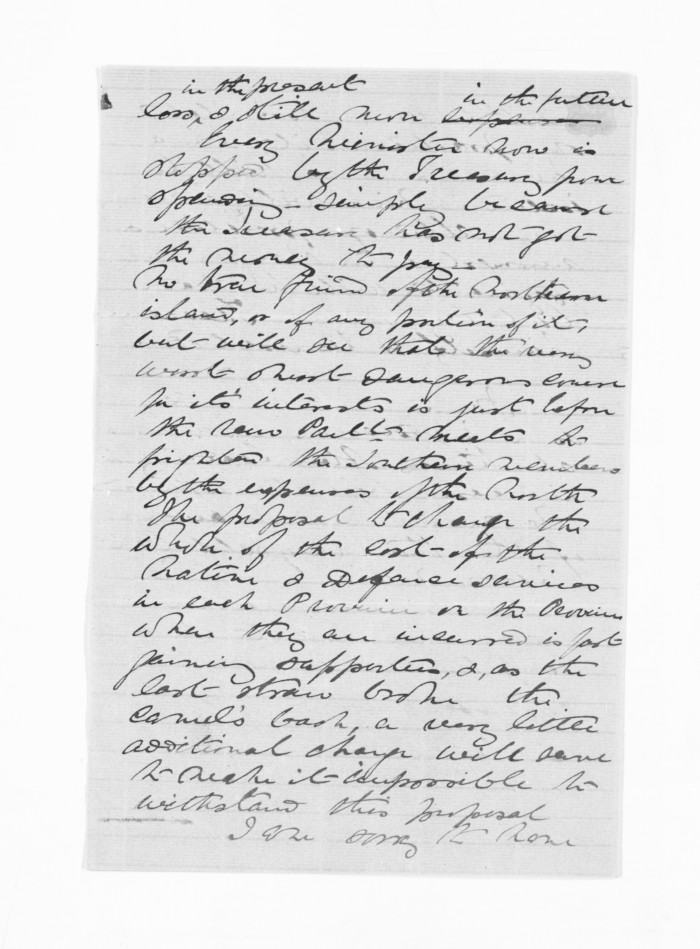 in the present in the future
loss, & still more expenses
Every Minister now is
stopped by the Treasury from
spending simply because
the Treasury has not got
the money to pay
No true friend of the Northern
island, or of any portion of it,
but will see that the very
worst & most dangerous course
for it's interests is just before
the new Parlt meets to
frighten the Southern members
by the expenses of the North
The proposal to charge the
whole of the cost of the
Native & Defence services
in each Province on the Province
where they are incurred is fast
gaining supporters, &, as the
last straw broke the
camel's back, a very little
additional charge will serve
to make it impossible to
withstand this proposal
I am sorry to have